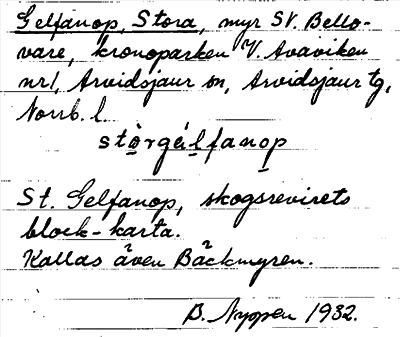 Gelfanop, Stora, myr SV. Bello-
vare, kronoparken V. Avaviken
nr1, Arvidsjaur sn, Arvidsjaur tg,
Norrb. l.
stòrgálfanop
St. Gelfanop, skogsrevirets
block-karta.
Kallas även Bäckmyren.
B. Nyppen 1932.